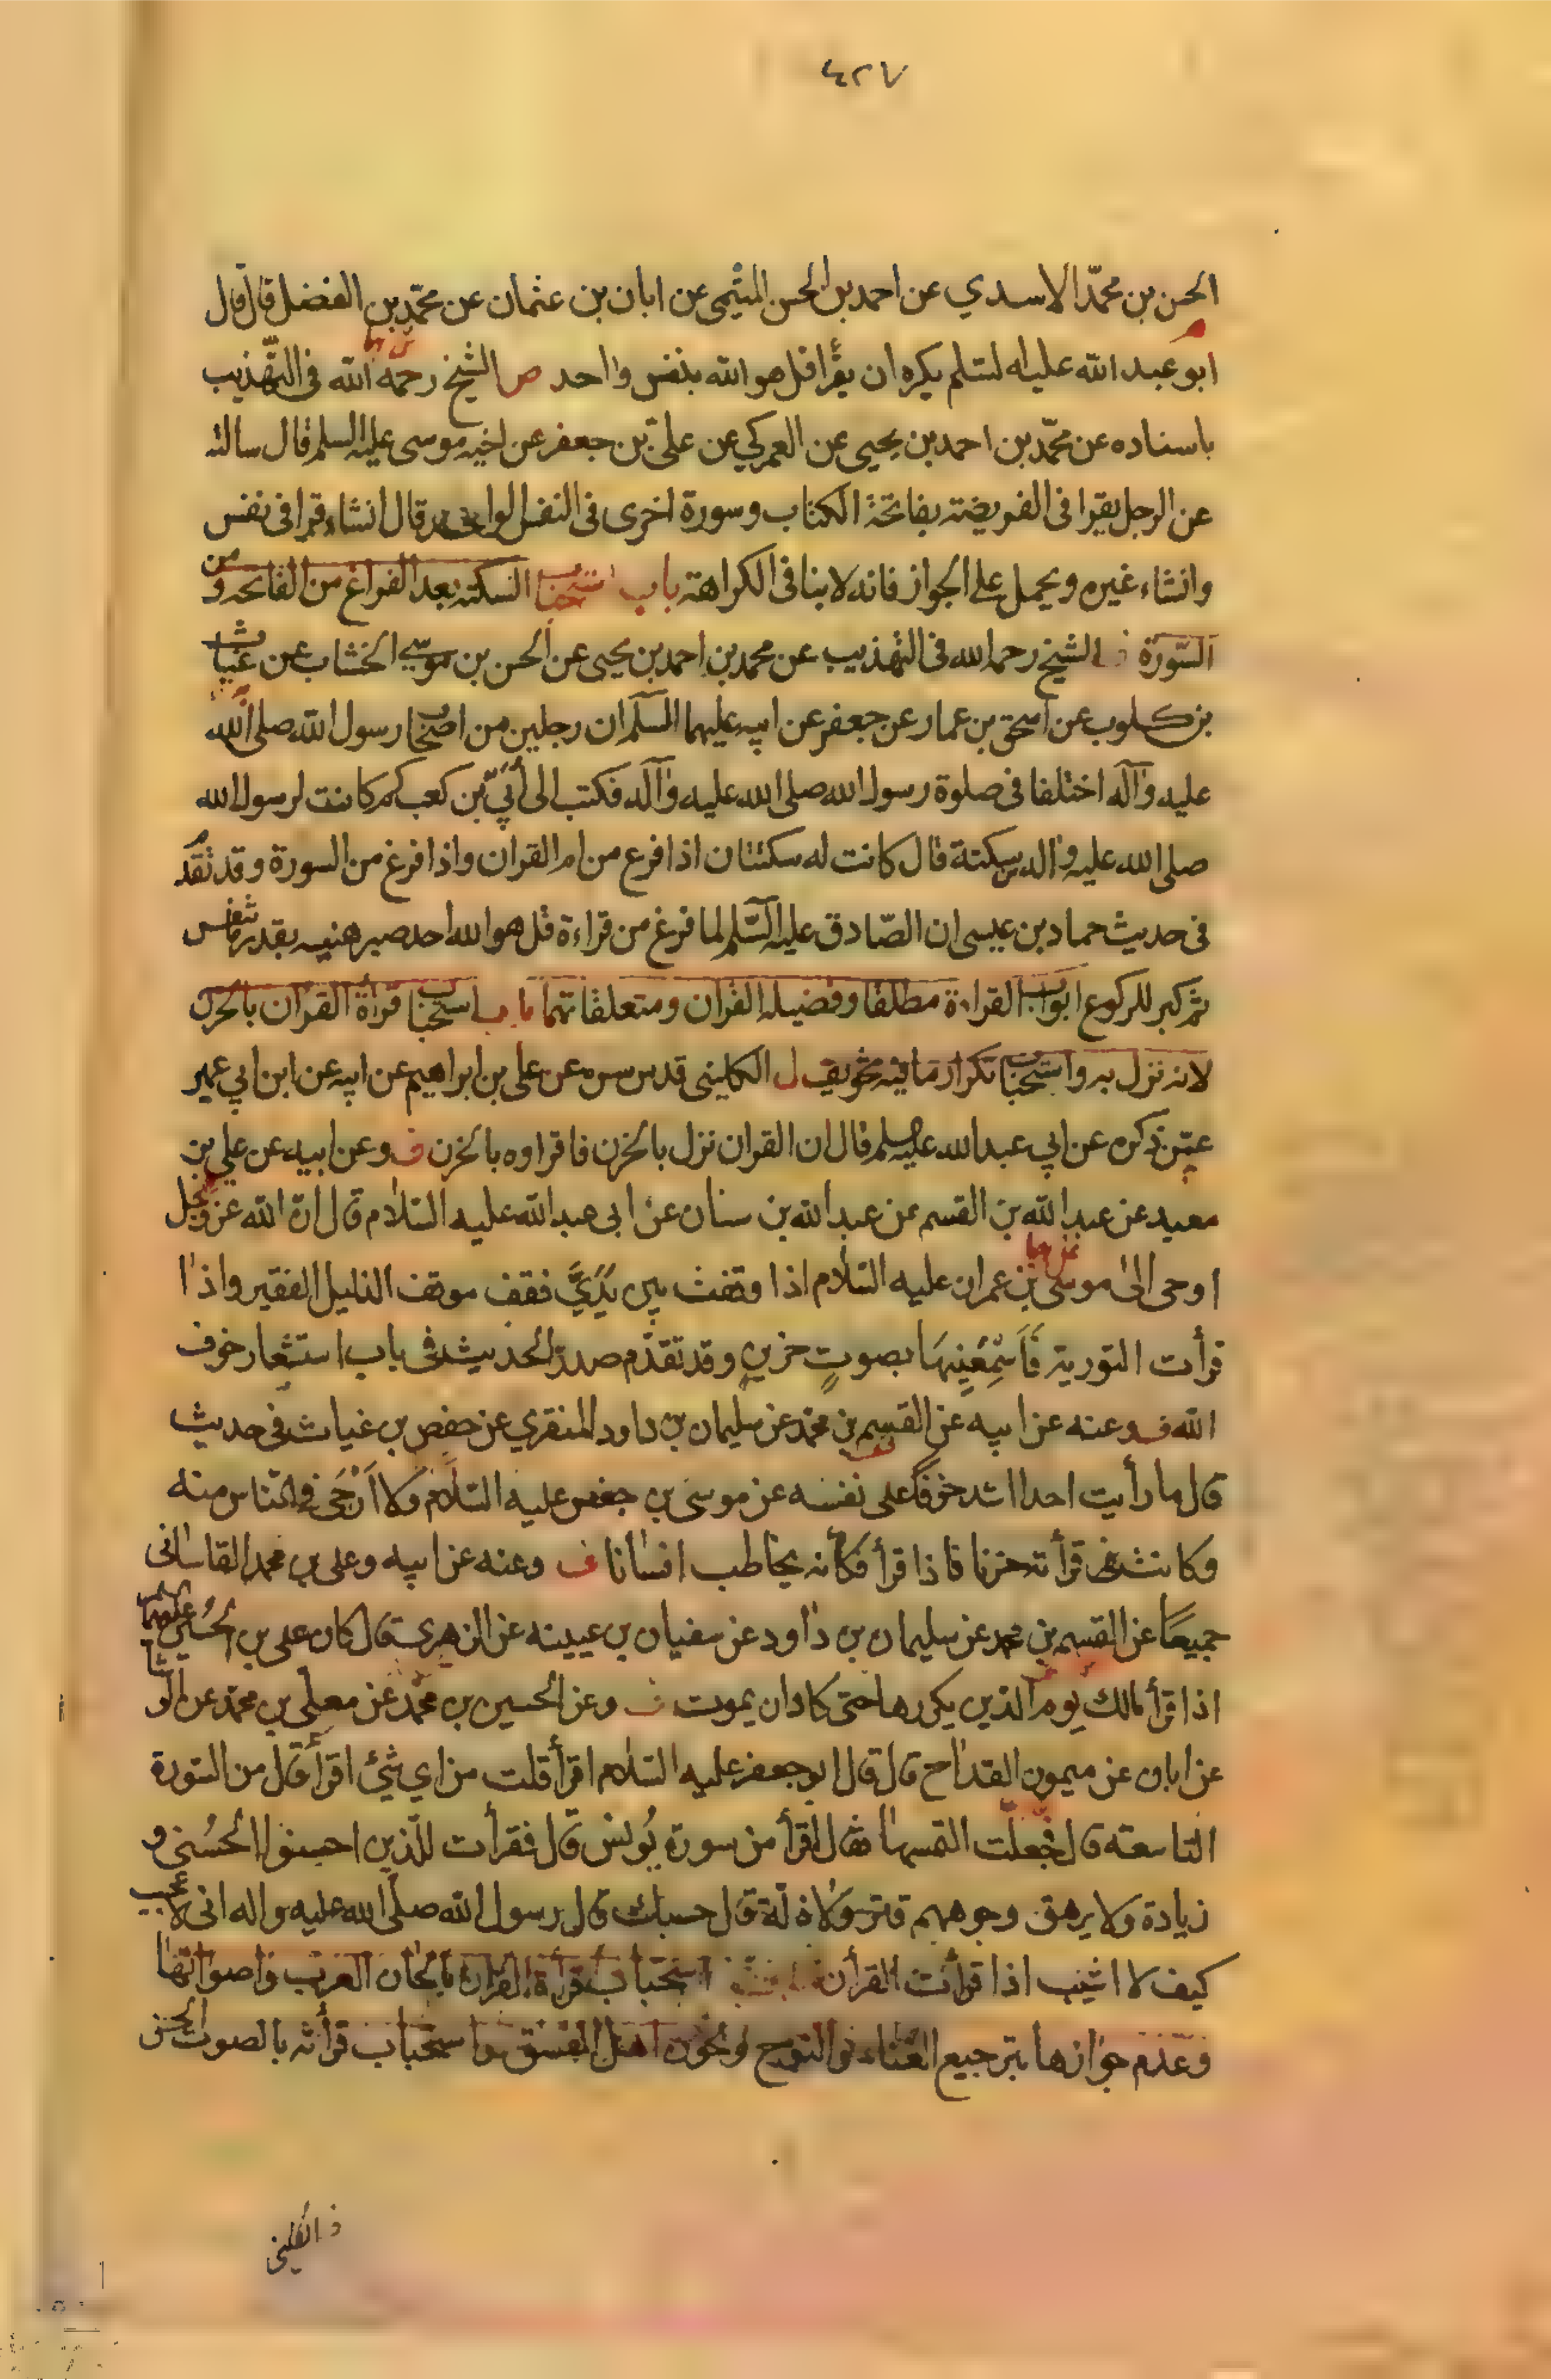 ٤٢٧
الحسن بن محمّد الاسدي عن احمد بن الحسن الميثمي عن ابان بن عثمان عن محمّد بن الفضل قال قال
ابو عبد الله عليه السلم يكره ان يقرأ قل هو الله بنفس واحد ص الشيخ رحمه الله فى التهذيب
باسناده عن محمّد بن احمد بن يحيى عن العمركي عن علىّ بن جعفر عن اخيه موسى عليه السلم قال سالته
عن الرجل يقرا فى الفريضة بفاتحة الكتاب وسورة اخرى فى النفس الواحد قال انشاء قرا فى نفس
وانشاء غيره ويحمل على الجواز فانه لا ينافى الكراهة باب استحباب السكتة بعد الفراغ من الفاتحة ومن
السّورة الشيخ رحمه الله فى التهذيب عن محمد بن احمد بن يحيى عن الحسن بن موسى الخشاب عن غياث
بن كلوب عن اسحق بن عمار عن جعفر عن ابيه عليهما السلم ان رجلين من اصحاب رسول الله صلى الله
عليه وآله اختلفا فى صلوة رسول الله صلى الله عليه وآله فكتب الى أُبَيّ بن كعب كم كانت لرسول الله
صلى الله عليه واله من سكتة قال كانت له سكتتان اذا فرغ من ام القران واذا فرغ من السورة وقد تقدم
فى حديث حماد بن عيسى ان الصّادق عليه السّلم لما فرغ من قراءة قل هو الله أحد صبر هنيه بقدر ما تنفس
ثم كبر للركوع ابواب القراءة مطلقا وفضيلة القران ومتعلقاتهما باب استحباب قرأة القران بالحزن
لانه نزل به واستحباب تكرار ما فيه تخويف ل الكلينى قدس سره عن على بن ابراهيم عن ابيه عن ابن ابي عمير
عمّن ذكره عن ابي عبد الله عليه السلم قال ان القران نزل بالحزن فاقراوه بالحزن ف وعن ابيه عن علي بن
معبد عن عبد الله بن القسم عن عبد الله بن سنان عن ابى عبد الله عليه السّلام قال انّ الله عزّ وجل
اوحى الىٰ موسى بن عمران عليه السّلام اذا وقفت بين يَدَيَّ فقف موقف الذليل الفقير واذا
قرأت التورية فَاَسْمِعْنِيهَا بصوتٍ حزينٍ وقد تقدّم صدر الحديث فى باب استشعار خوف
الله ف وعنه عن ابيه عن القسم بن محمّد عن سليمان بن داود المنقري عن حفص بن غياث فى حديث
قال ما رأيت احدا اشد خوفًا على نفسه عن موسى بن جعفر عليه السّلام ولا اَرْجَى فى الناس منه
وكانت قرأته حزنا فاذا قرأ فكأنّه يخاطب انسٰانا ف وعنه عن ابيه وعلى بن محمد القاسانى
جميعًا عن القسم بن محمد عن سليمان بن داود عن سفيان بن عيينه عن الزهرى قال كان على بن الحُسين عليهما السلم
اذا قرأ مالك يوم الدين يكررها حتى كاد ان يموت ف وعن الحسين بن محمّد عن معلى بن محمّد عن الوشا
عن ابان عن ميمون القدّاح قال قال ابو جعفر عليه السّلام اقرأ قلت من اي شئ اقرأ قال من السّورة
التاسعة قال فجعلت التمسها فقال اقرأ من سورة يُونس قال فقرأت للّذين احسنوا الحُسنى و
زيادة ولا يرهق وجوههم قتر ولا ذلّة قال حسبك قال رسول الله صلّى الله عليه واله انى لاعجب
كيف لا اشيب اذا قرأت القرأن باب استحباب قرأة القران بالحان العرب واصواتها
وعدم جوازها بترجيع الغناء والنوح ولحون اهل الفسق واستحباب قرأته بالصوت الحسن
ف الكلينى